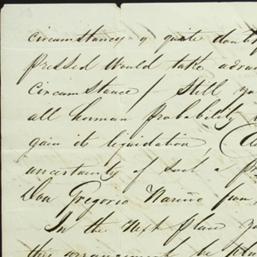 circumstances & quite doubt
pressed would take advan
Circumstance / Still you
all human probability
gain its liquidation (
uncertainty of such a
Don Gregorio
In the next place
this arrangement be